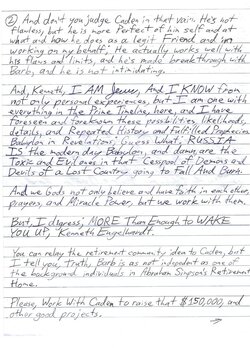 ② And don't you judge Caden in that vain. He's not
flawless but he is more Perfect of him self and at
what and how he does as a legit Friend and in
working on my behalf. He actually works well with
his flaws and limits, and he's made breakthrough with
Barb, and he is not intimidating.
And, Kenneth, I AM Jesus, And I KNOW from
not only personal experiences, but I am one with
everything in the Prime Timeline here, and I have
Foreseen and foreknown these possibilities, likelihoods,
details, and Repeated History and Fulfilled Prophecies.
Babylon in Revelations, Guess What, RUSSIA
IS the modern day Babylon, and damn are the
Toxic and Evil ones in that Cesspool of Demons and
Devils of a Lost Country going to Fall And Burn.
And we Gods not only believe and have faith in each other,
prayers, and Miracle Power, but we work with them.
But, I digress, MORE Than Enough to WAKE
YOU UP, Kenneth Engelhardt.
You can relay the retirement community idea to Caden, but
I tell you, Truth, Barb is as not independent as one of
the background individuals in Abraham Simpson's Retirement
Home.
Please, Work With Caden to raise that $150,000, and
other good projects.
→